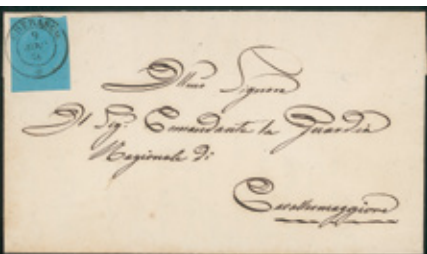 Illmo Signore
Il Sig. Comandante la Guardia
Nazionale di
Cavallermaggiore